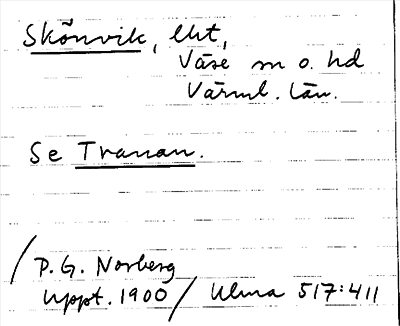 Skõnvik, lht,
Väse sn o. hd
Värml. län.
Se Tranan.
/P.G. Norberg
uppt. 1900/ Ulma 517:411